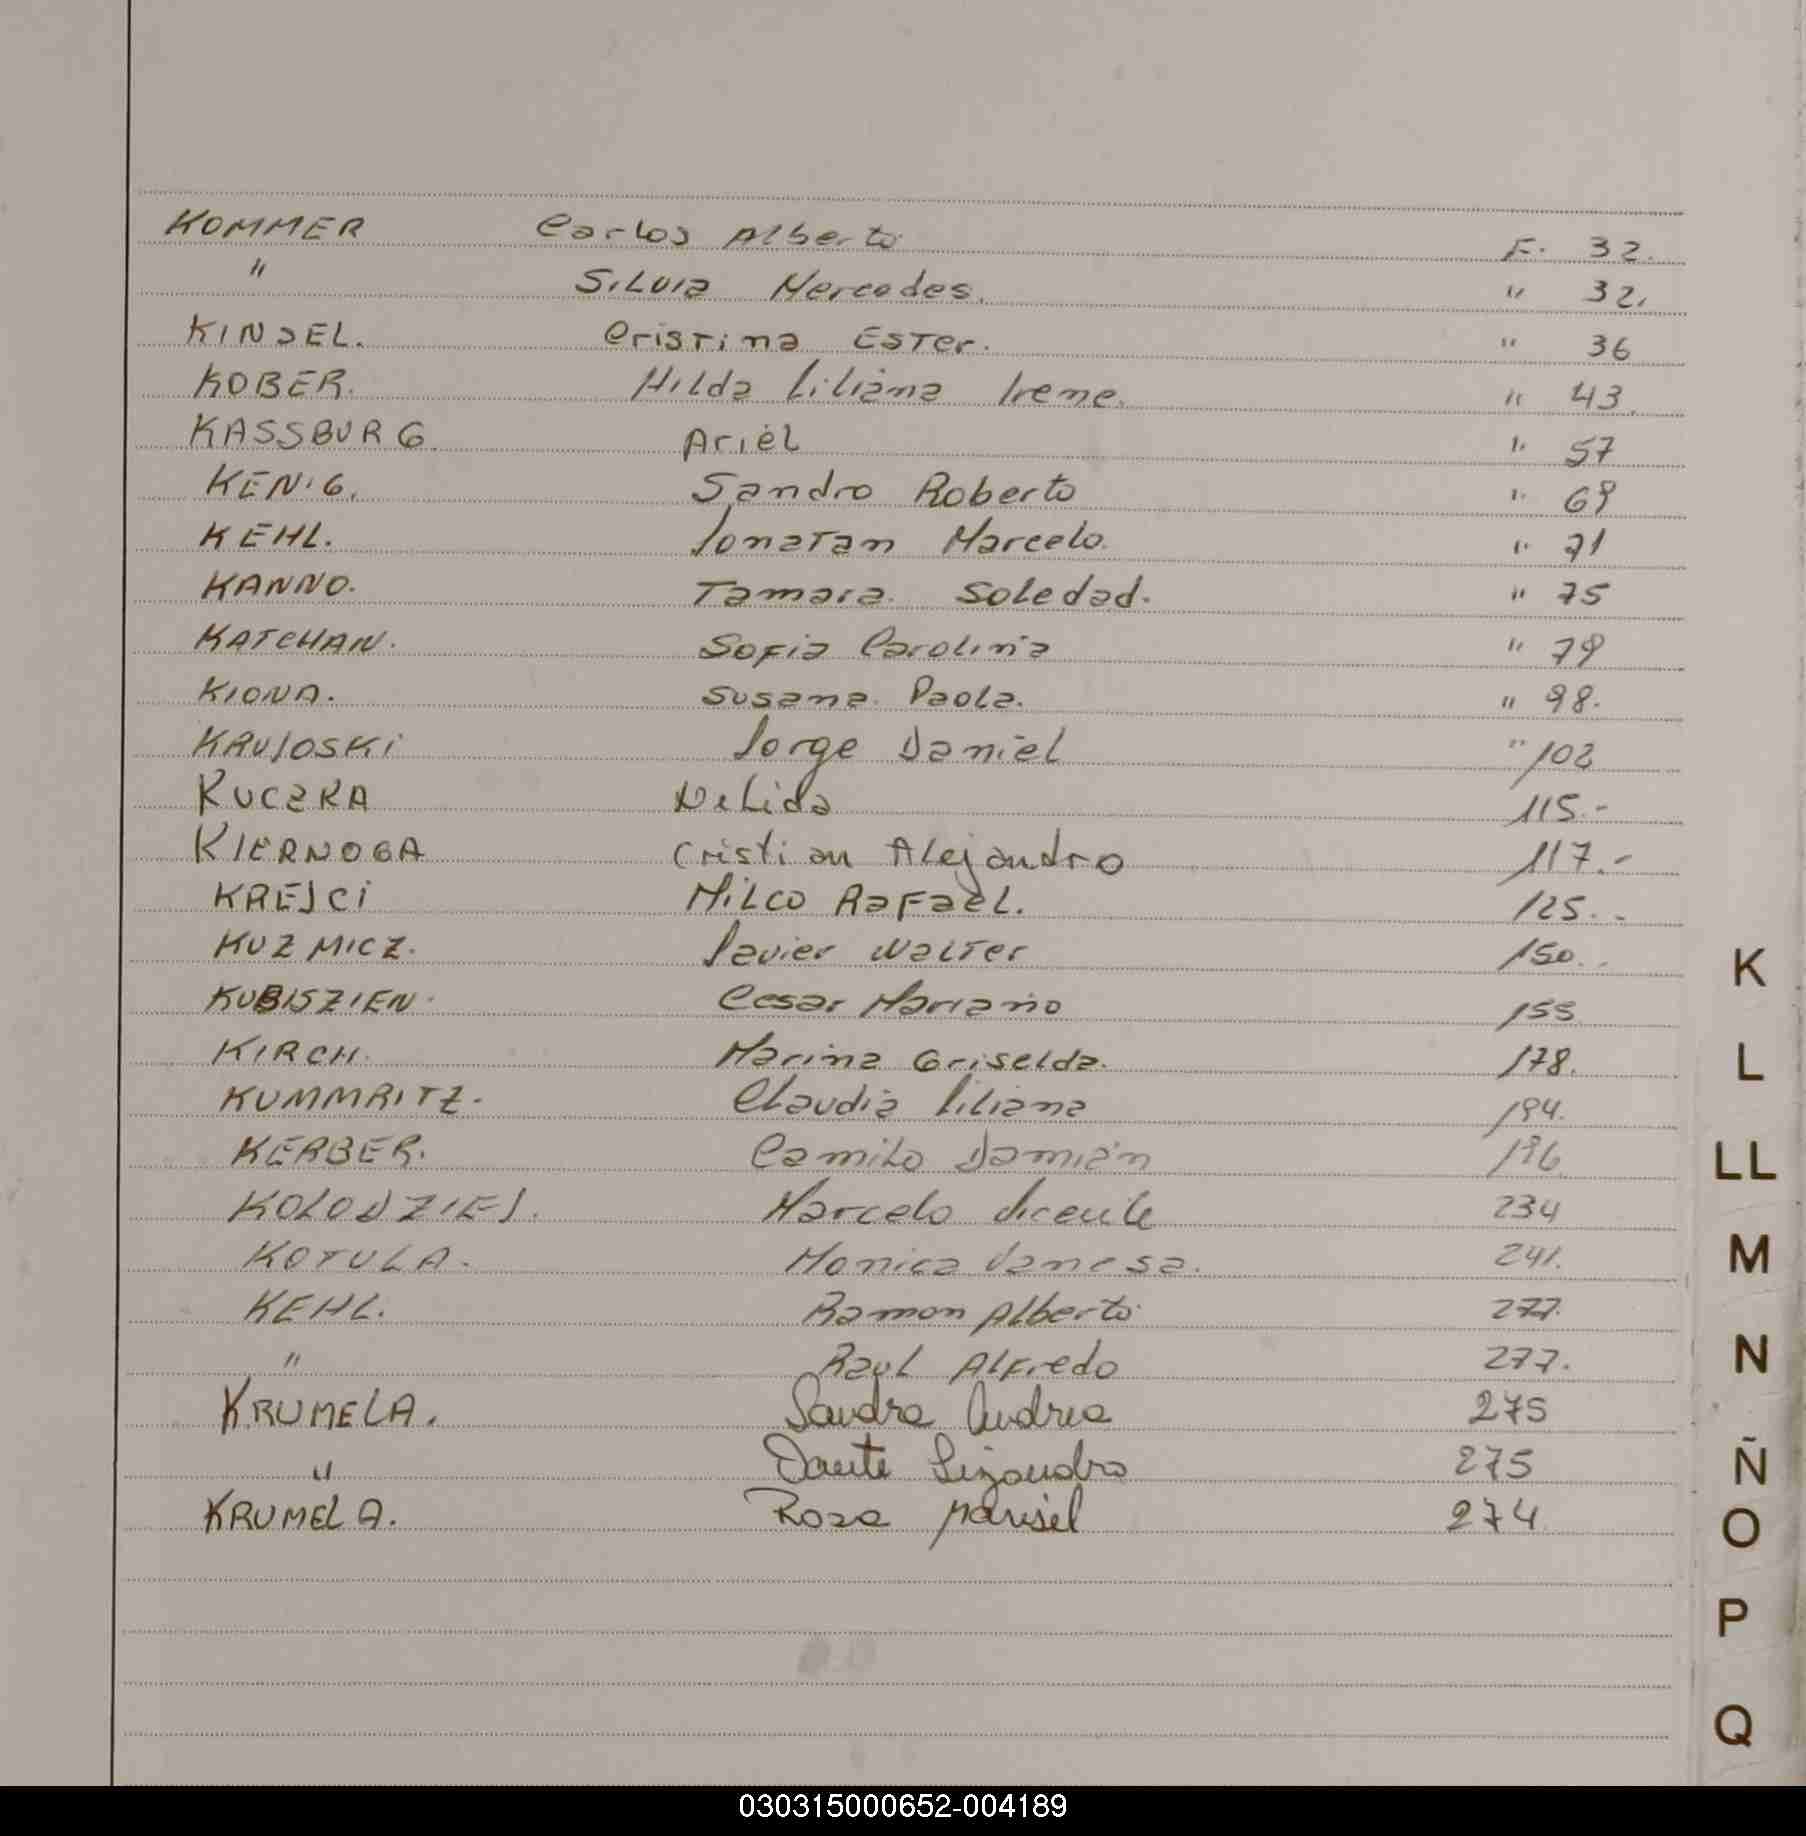 KOMMER Carlos Alberto F. 32.
" Silvia Mercedes. " 32.
KINSEL. Cristina Ester. " 36
KOBER. Hilda Liliana Irene. " 43.
KASSBURG. Ariel " 57
KENIG. Sandro Roberto " 69
KEHL. Jonatan Marcelo. " 71
KANNO. Tamara Soledad. " 75
KATCHAN. Sofia Carolina " 79
KIONA. Susana Paola. " 98.
KRUJOSKI Jorge Daniel " 102
KUCZKA Nelida 115.-
KIERNOGA Cristian Alejandro 117.-
KREJCI Milco Rafael. 125.-
KUZMICZ. Javier Walter 150.-
KUBISZIEN. Cesar Mariano 155.
KIRCH. Marina Griselda. 178.
KUMMRITZ. Claudia Liliana 194.
KERBER. Camilo Damián 196.
KOLODZIEJ. Marcelo Vicente 234
KOTULA. Monica Vanesa. 241.
KEHL. Ramon Alberto 277.
" Raul Alfredo 277.
KRUMELA. Sandra Andrea 275
" Dante Lizandro 275
KRUMELA. Rosa Marisel 274
K
L
LL
M
N
Ñ
O
P
Q
030315000652-004189